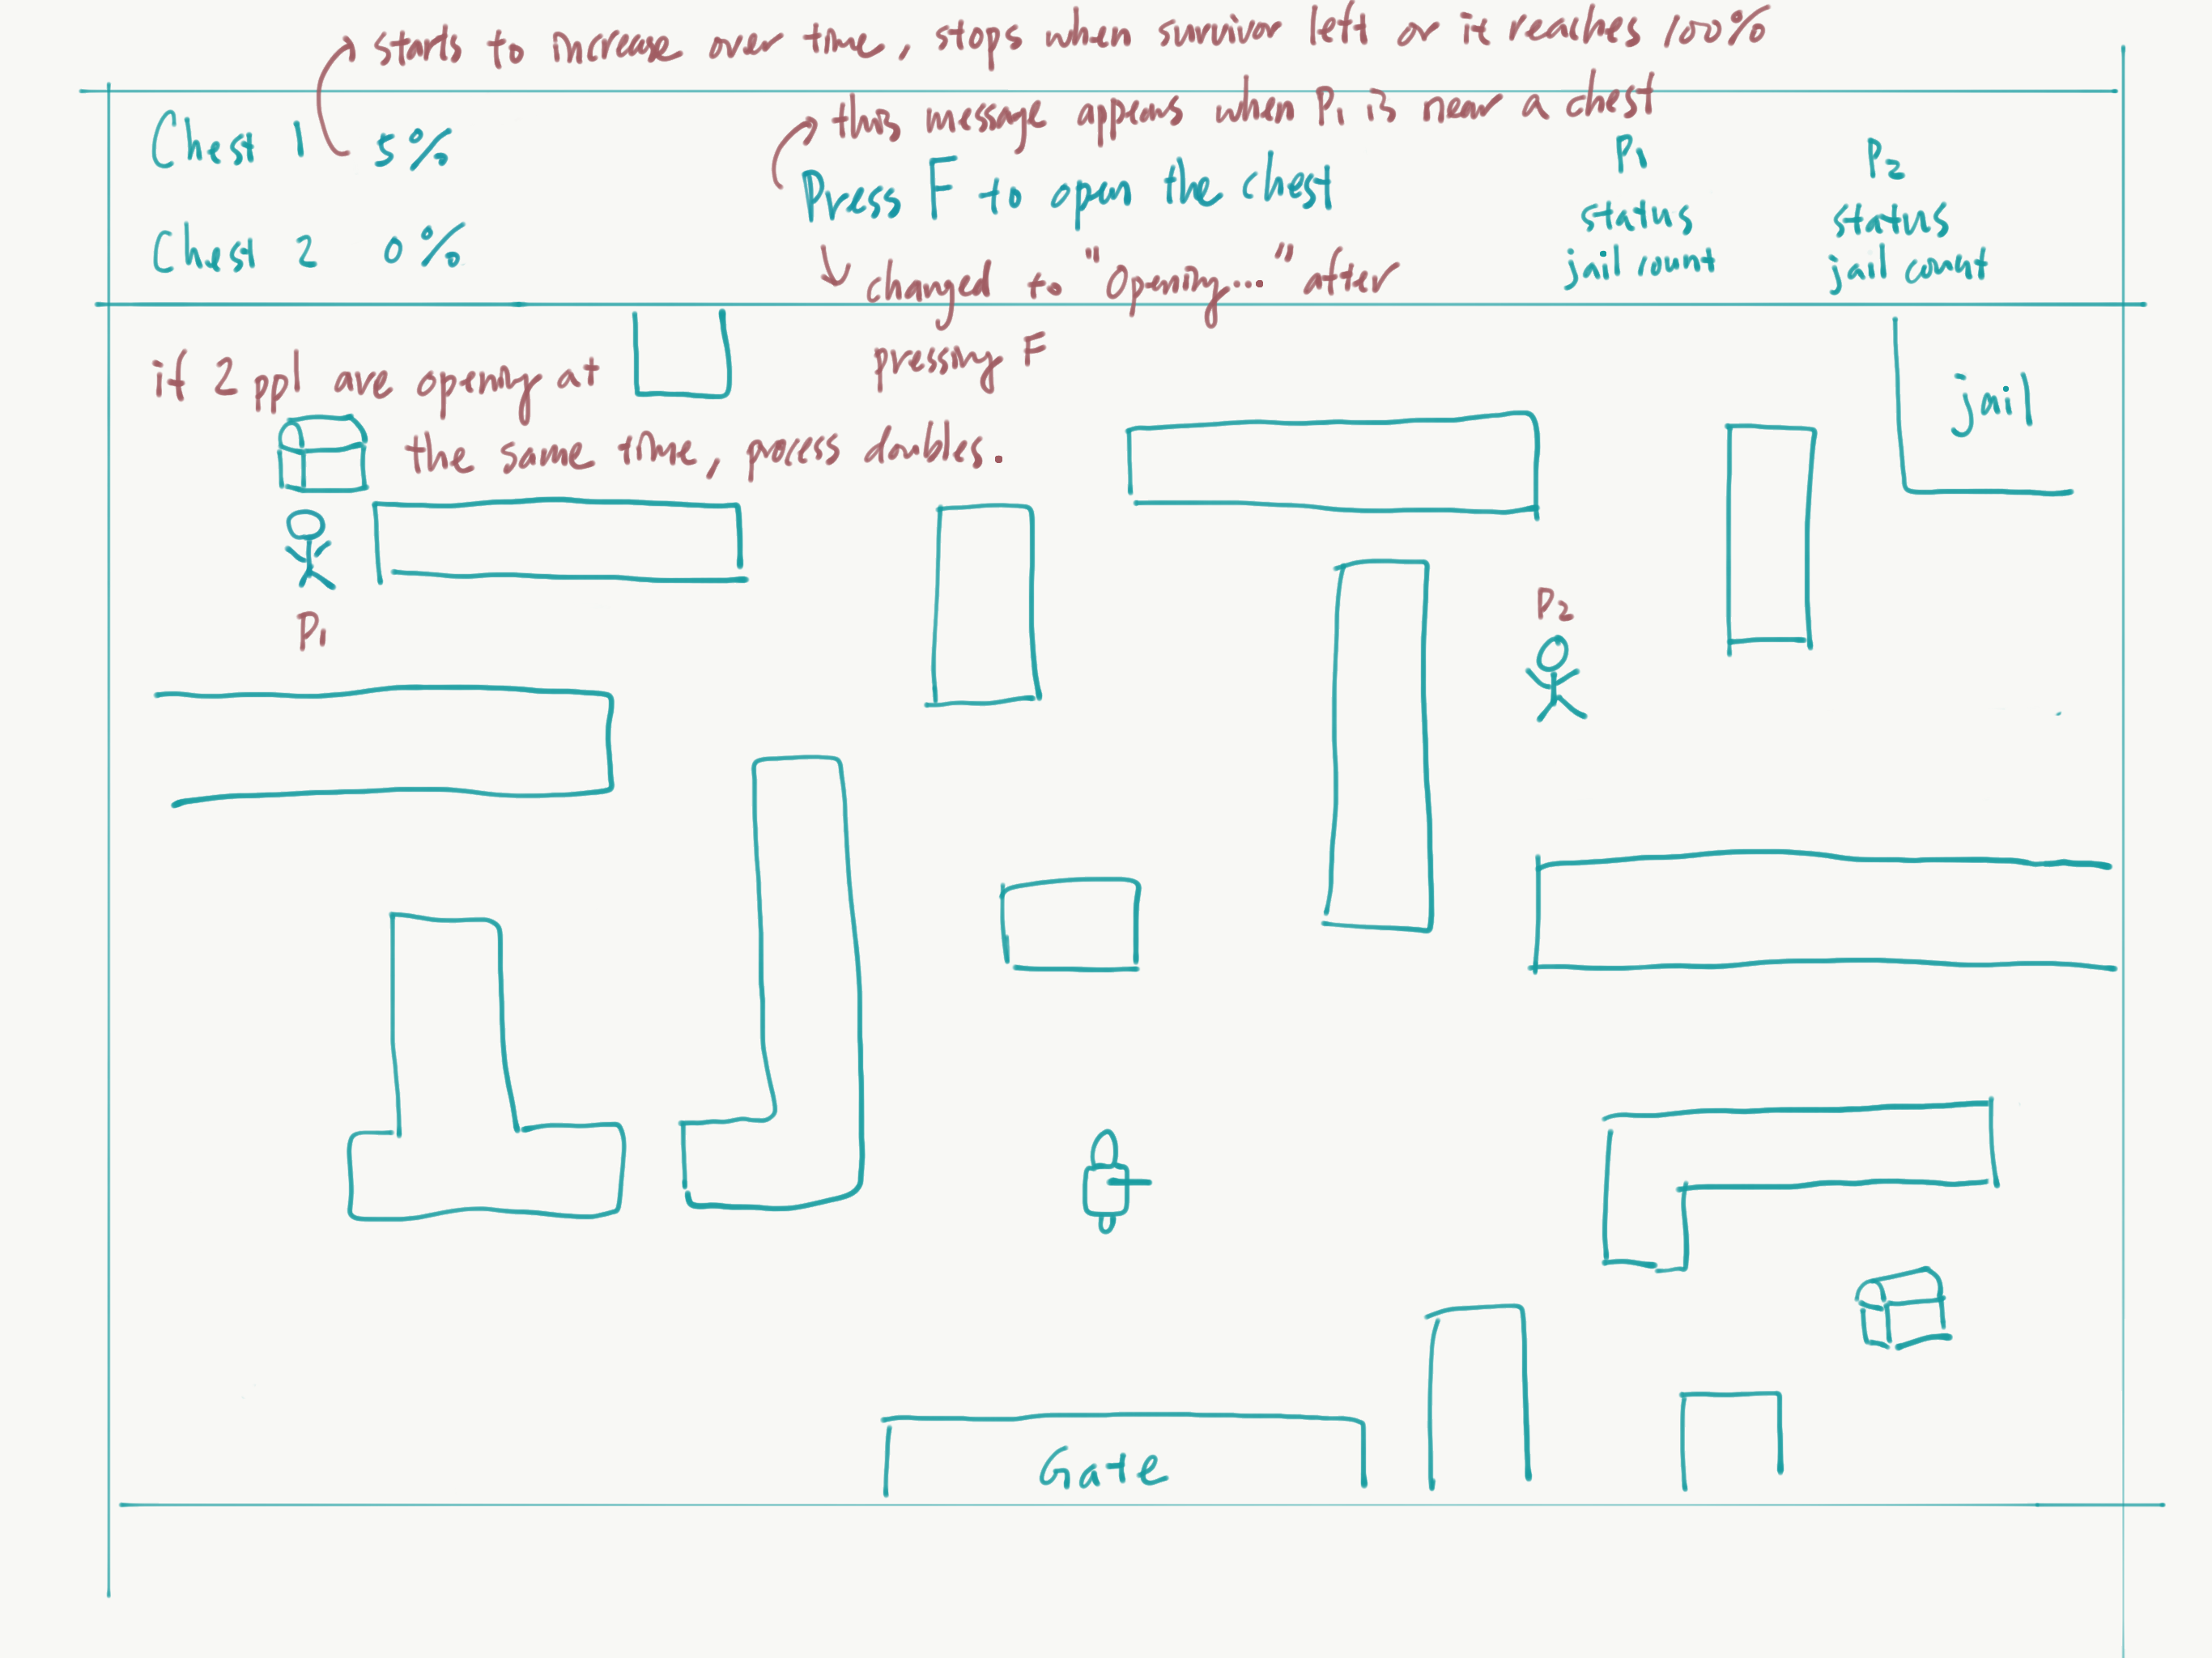 starts to increase over time, stops when survivor left or it reaches 100%
this message appens when P1 is near a chest
Chest 1 5%
Press F to open the chest
Chest 2 0%
changed to "Opening..." after
pressing F
P1
status
jail count
P2
status
jail count
if 2 ppl are opening at
the same time, process doubles.
jail
P1
P2
Gate